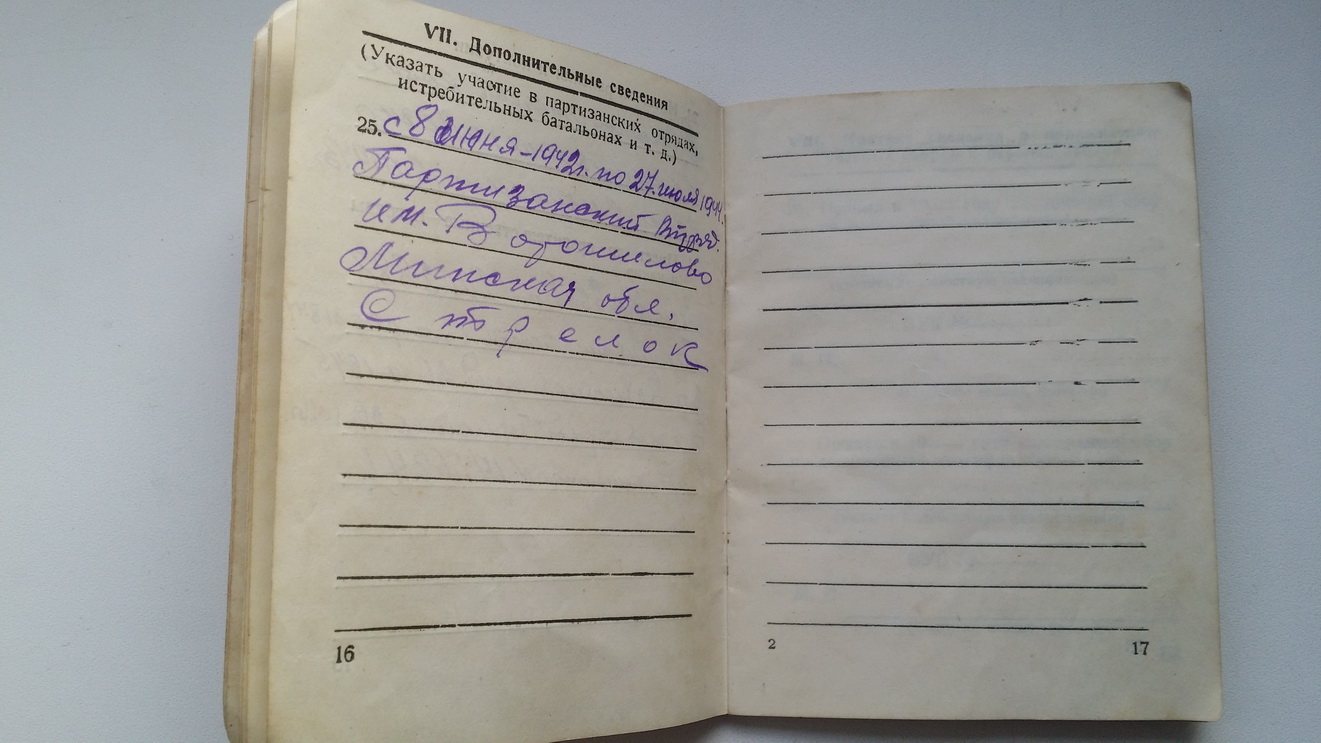 VII. Дополнительные сведения
(Указать участие в партизанских отрядах,
истребительных батальонах и т. д.)
25. с 8 июня-1942г. по 27.июля 1944г.
Партизанский отряд.
им. Ворошилова
Минская обл.
Стрелок
16
2
17